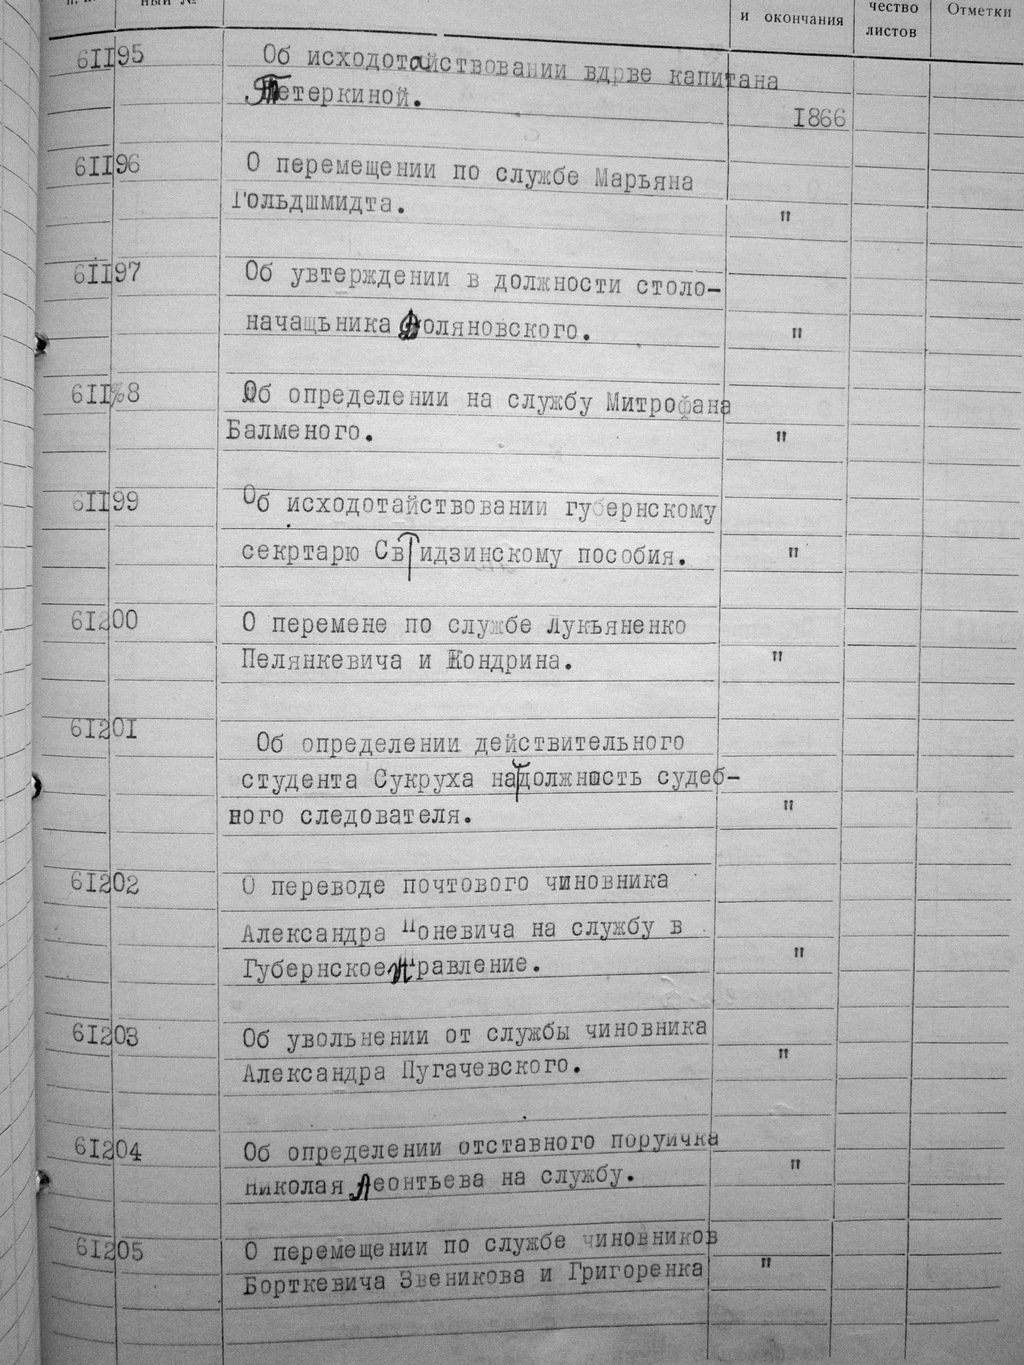 п.п.
ный №
и окончания
чество
листов
Отметки
61195 Об исходотайствовании вдрве капитана
Тетеркиной.
1866
61196 О перемещении по службе Марьяна
Гольдшмидта. "
61197 Об увтерждении в должности столо-
начащьника Доляновского. "
611%8 Об определении на службу Митрофана
Балменого. "
61199 Об исходотайствовании губернскому
секртарю Свтидзинскому пособия. "
61200 О перемене по службе Лукъяненко
Пелянкевича и Кондрина. "
61201 Об определении действительного
студента Сукруха на должность судеб-
ного следователя. "
61202 О переводе почтового чиновника
Александра Поневича на службу в
Губернское правление. "
61203 Об увольнении от службы чиновника
Александра Пугачевского. "
61204 Об определении отставного поручика
Николая Леонтьева на службу. "
61205 О перемещении по службе чиновников
Борткевича Звеникова и Григоренка "